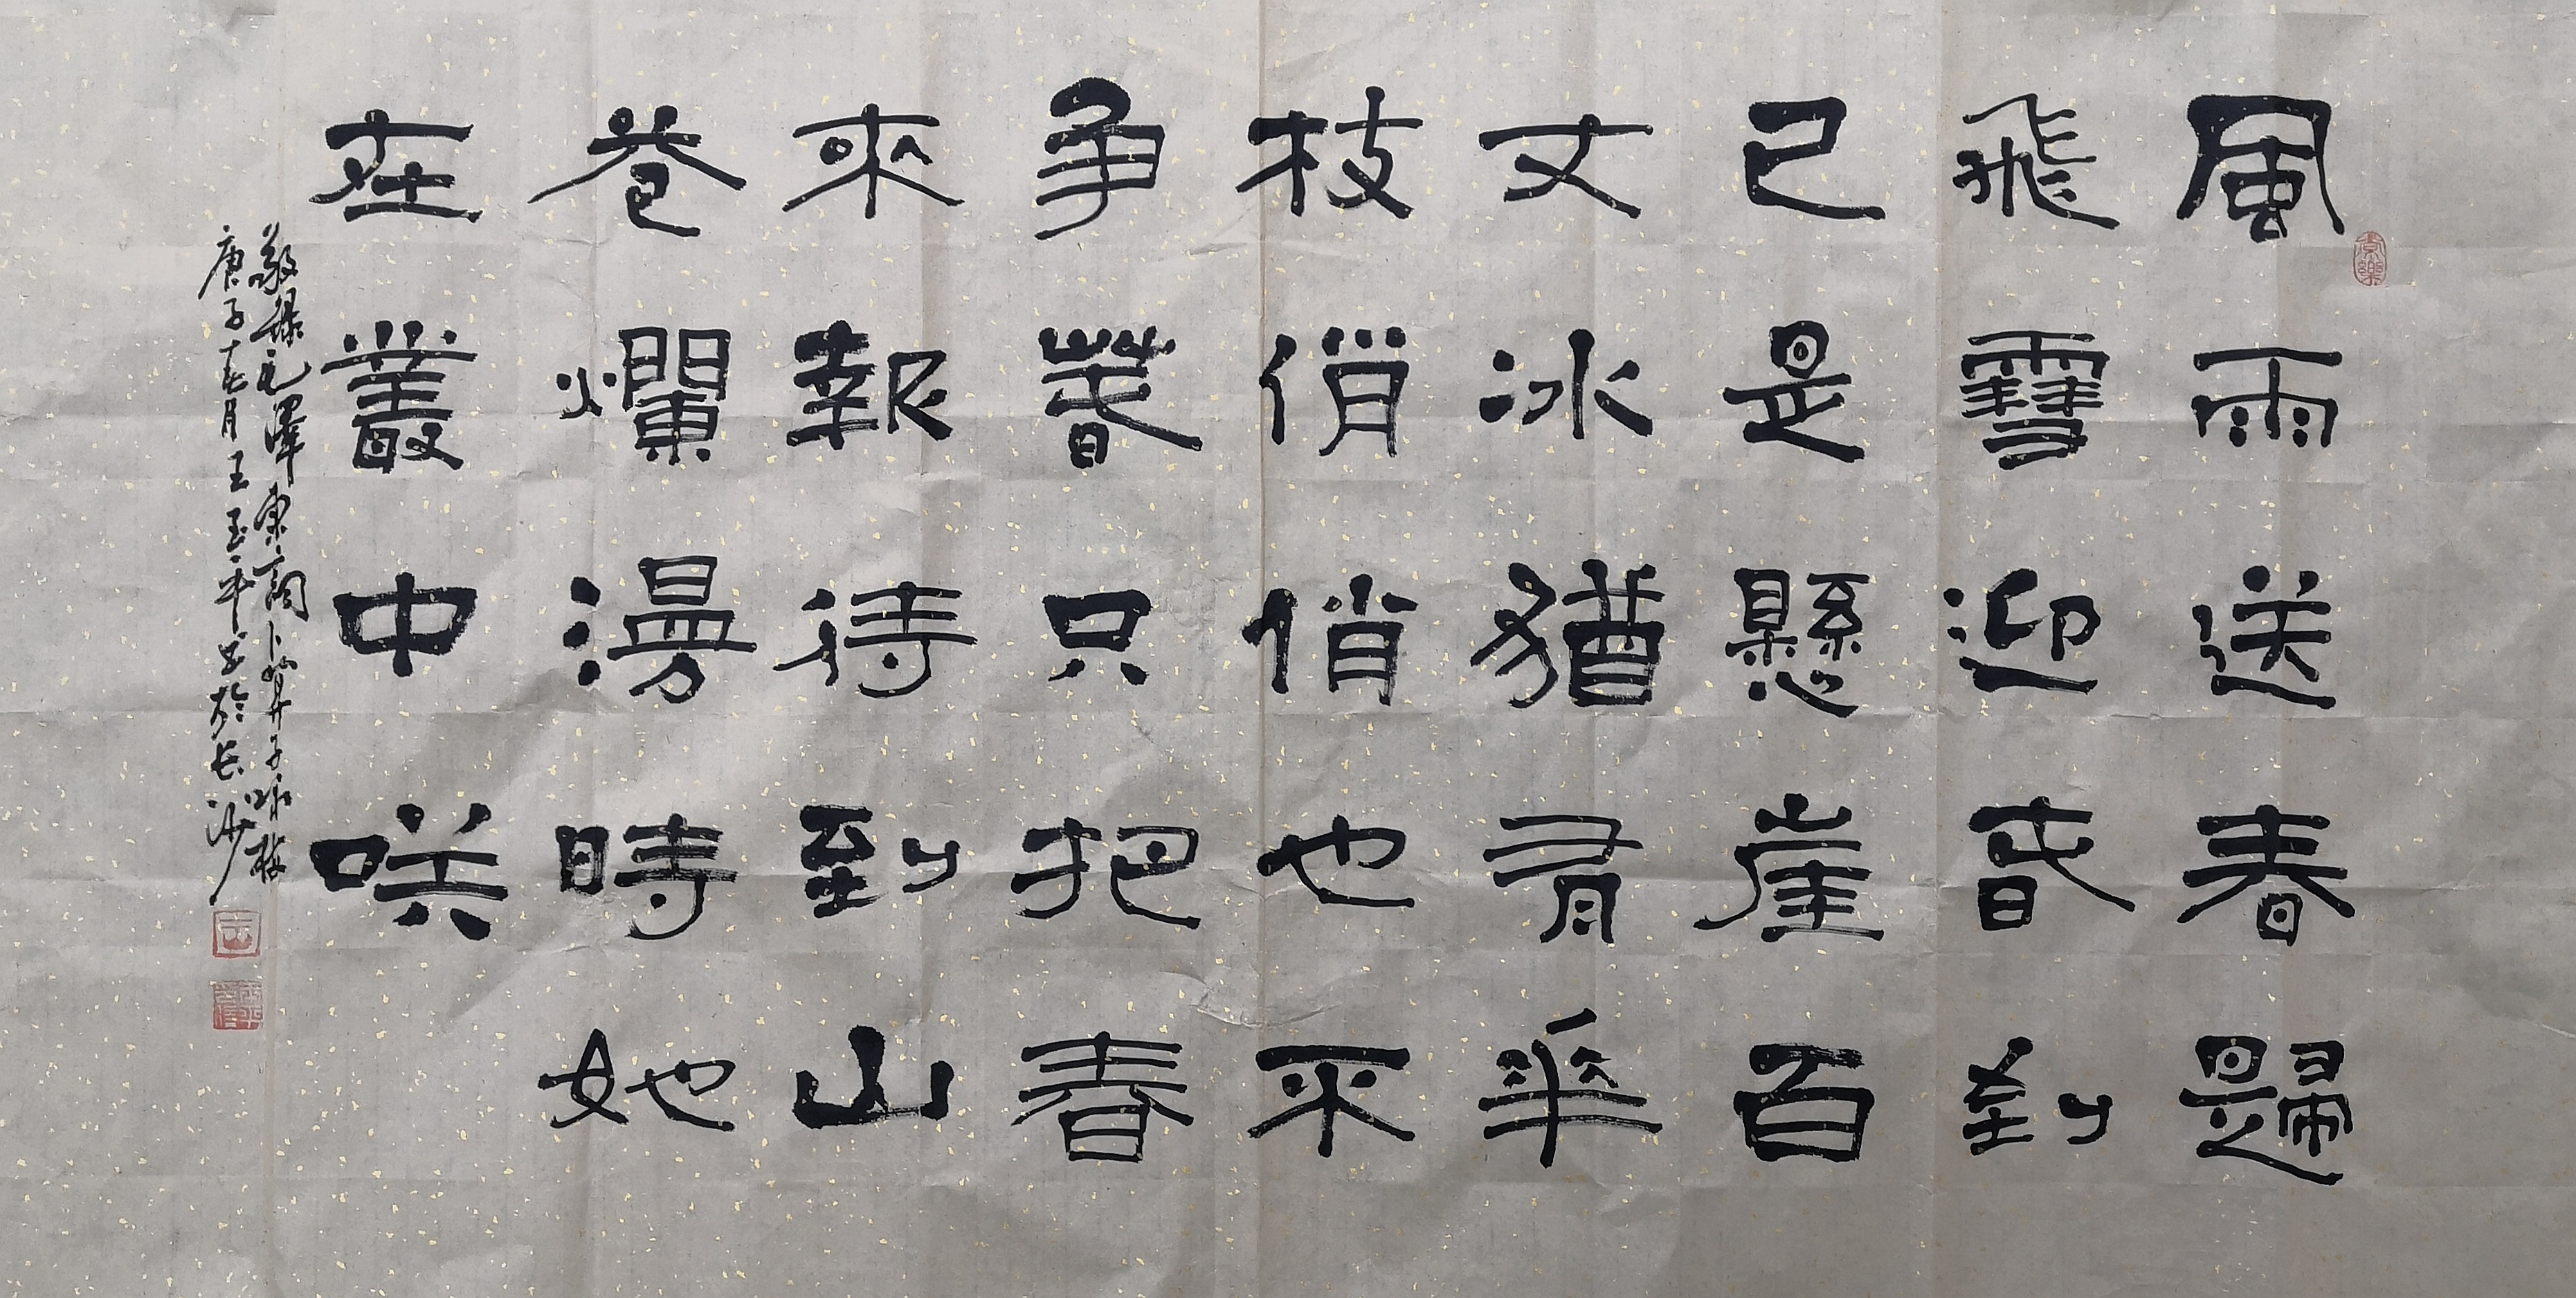 風雨送春歸
飛雪迎春到
已是懸崖百
丈冰猶有華
枝俏俏也不
争春只把春
來報待到山
花爛漫時她
在叢中咲
敬錄毛澤東詞卜算子咏梅
庚子春月王玉平書於长沙